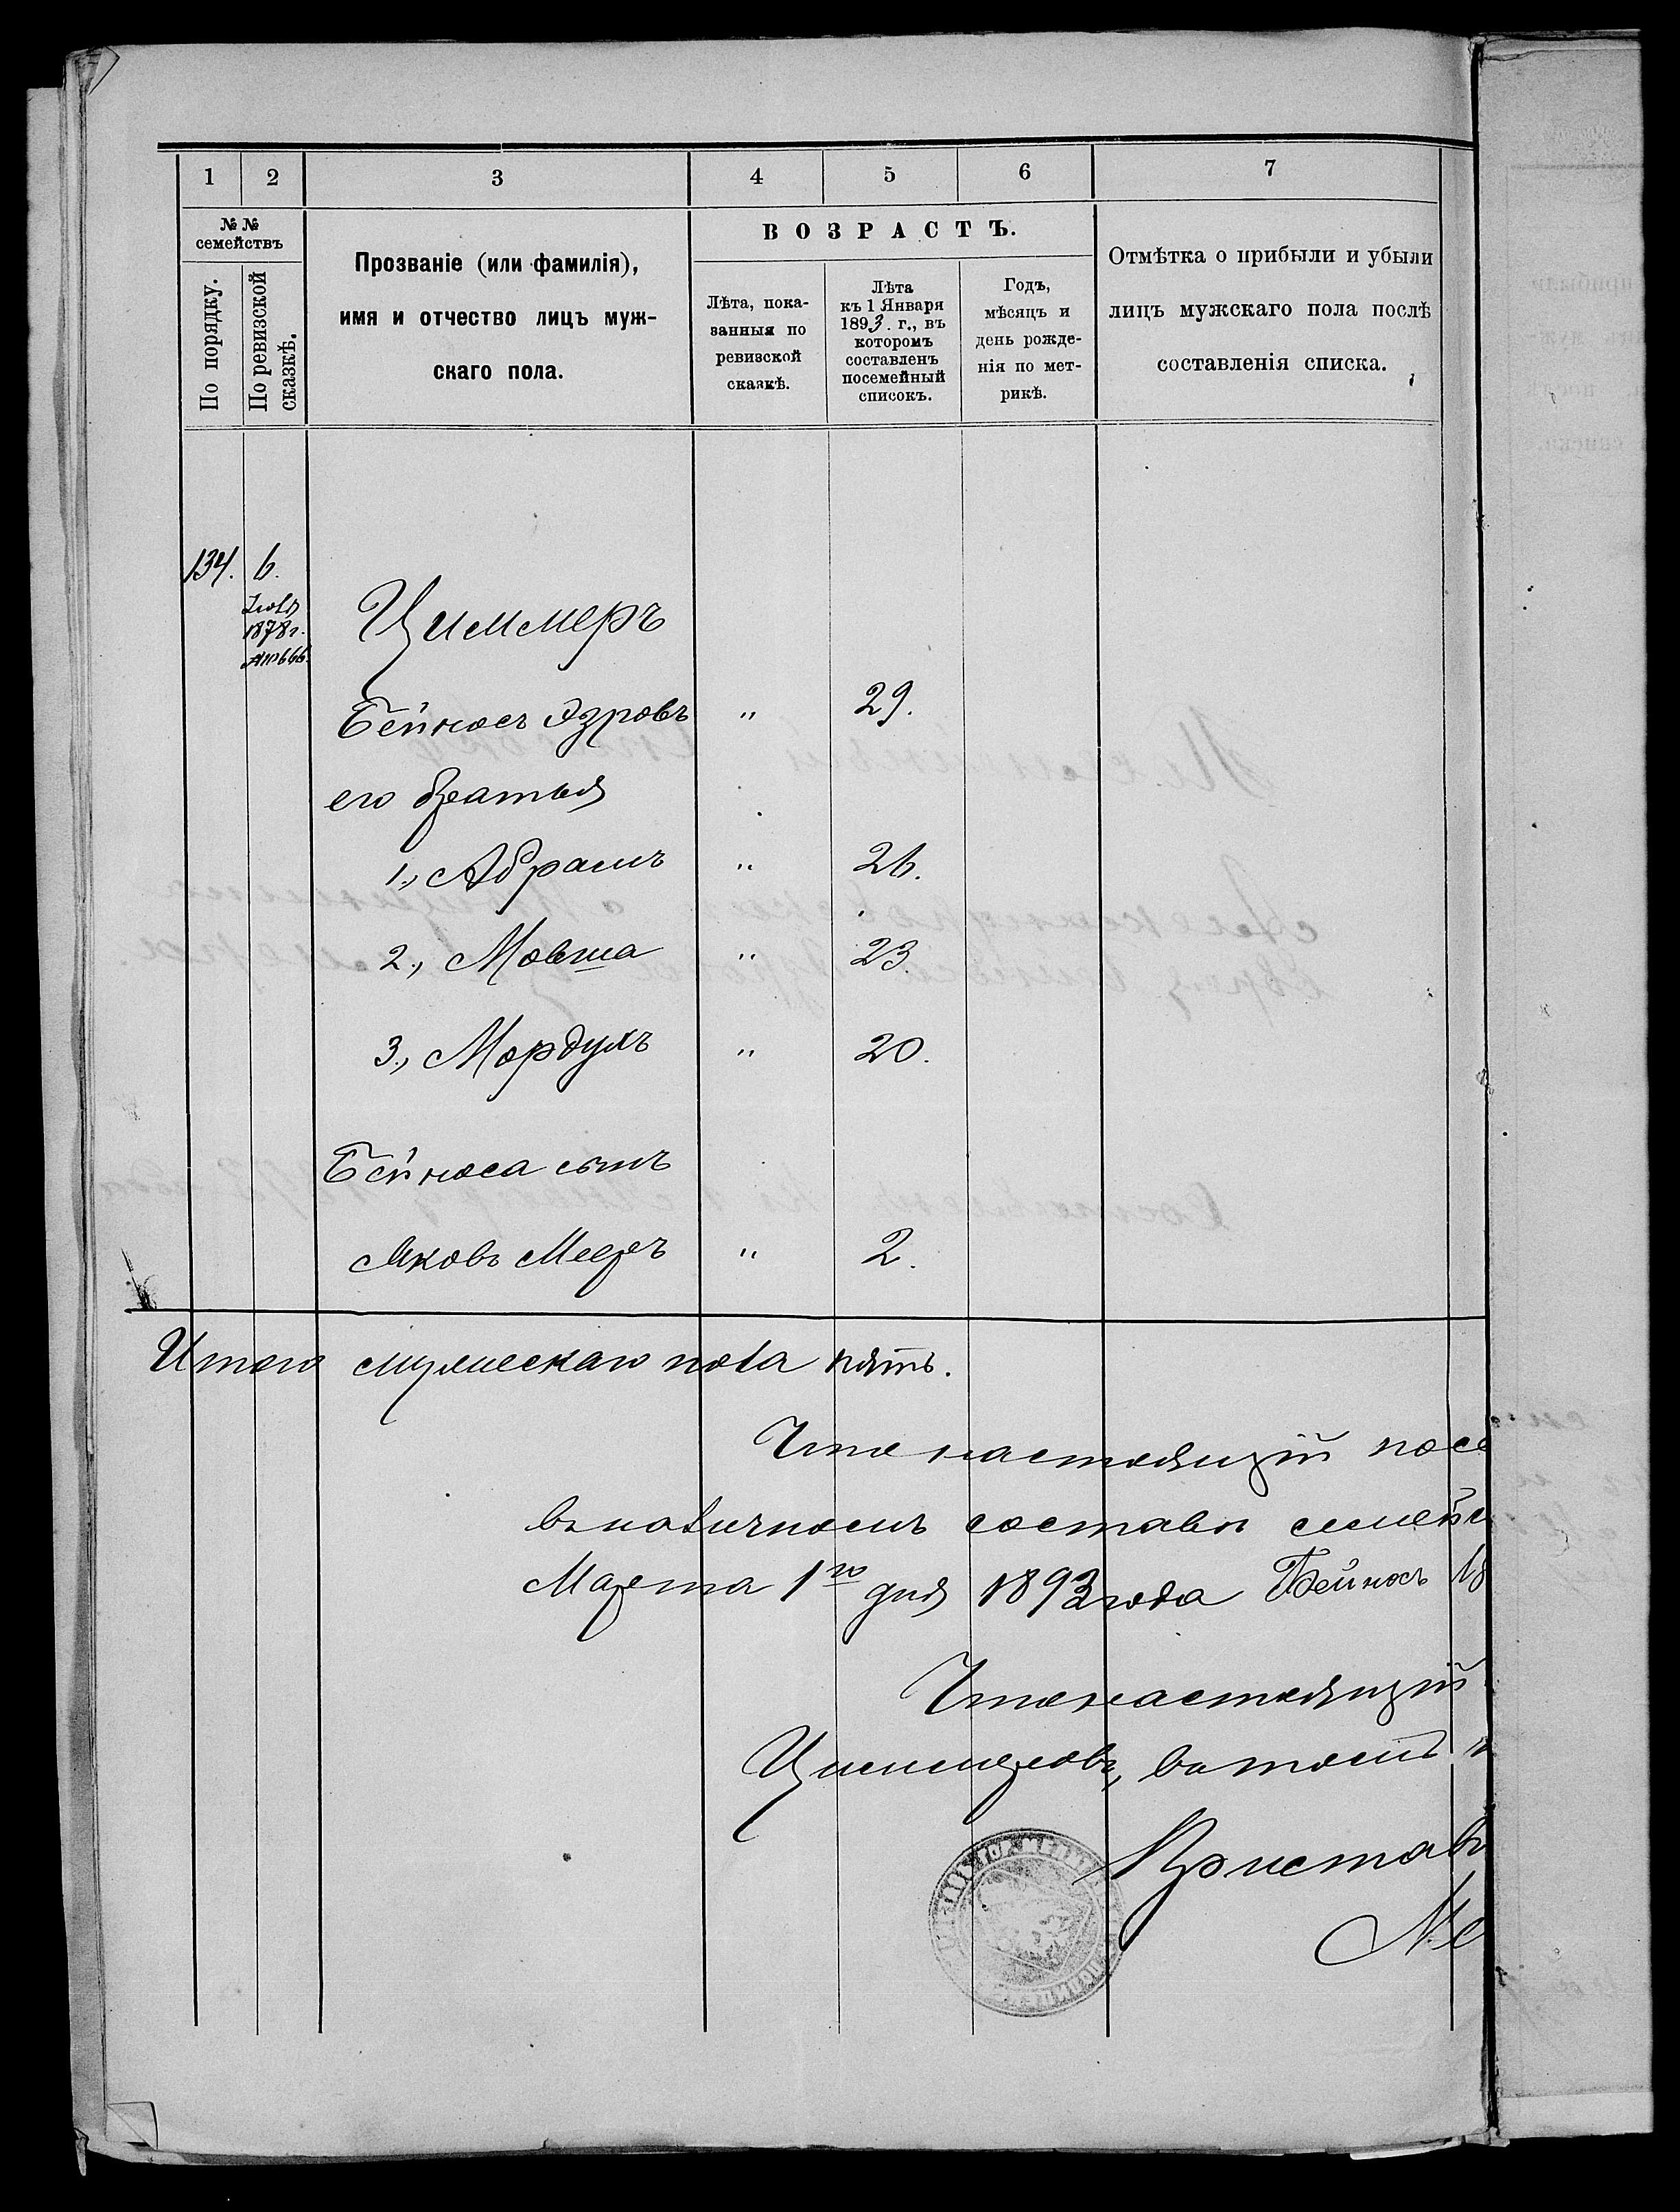 1 2 3 4 5 6 7
№ №
семействъ
По порядку.
По ревизской
сказкѣ.
Прозваніе (или фамилія),
имя и отчество лицъ муж-
скаго пола.
ВОЗРАСТЪ.
Лѣта, пока-
занныя по
ревизской
сказкѣ.
Лѣта
къ 1 Января
1893. г., въ
которомъ
составленъ
посемейный
списокъ.
Годъ,
мѣсяцъ и
день рожде-
нія по мет-
рикѣ.
Отмѣтка о прибыли и убыли
лицъ мужскаго пола послѣ
составленія списка.
134. 6.
1878 г.
Циммеръ
Бейносъ Эзровъ " 29.
его братья
1., Абрамъ " 26.
2., Мовша " 23.
3., Мордухъ " 20.
Бейноса сынъ
Яковъ Мееръ " 2.
Итого мужескаго пола пять.
Что настоящій посе
въ наличномъ составѣ семейс
Марта 1го дня 1893 года Бейносъ
Что настоящій
Циммеровъ, въ томъ
Приставъ